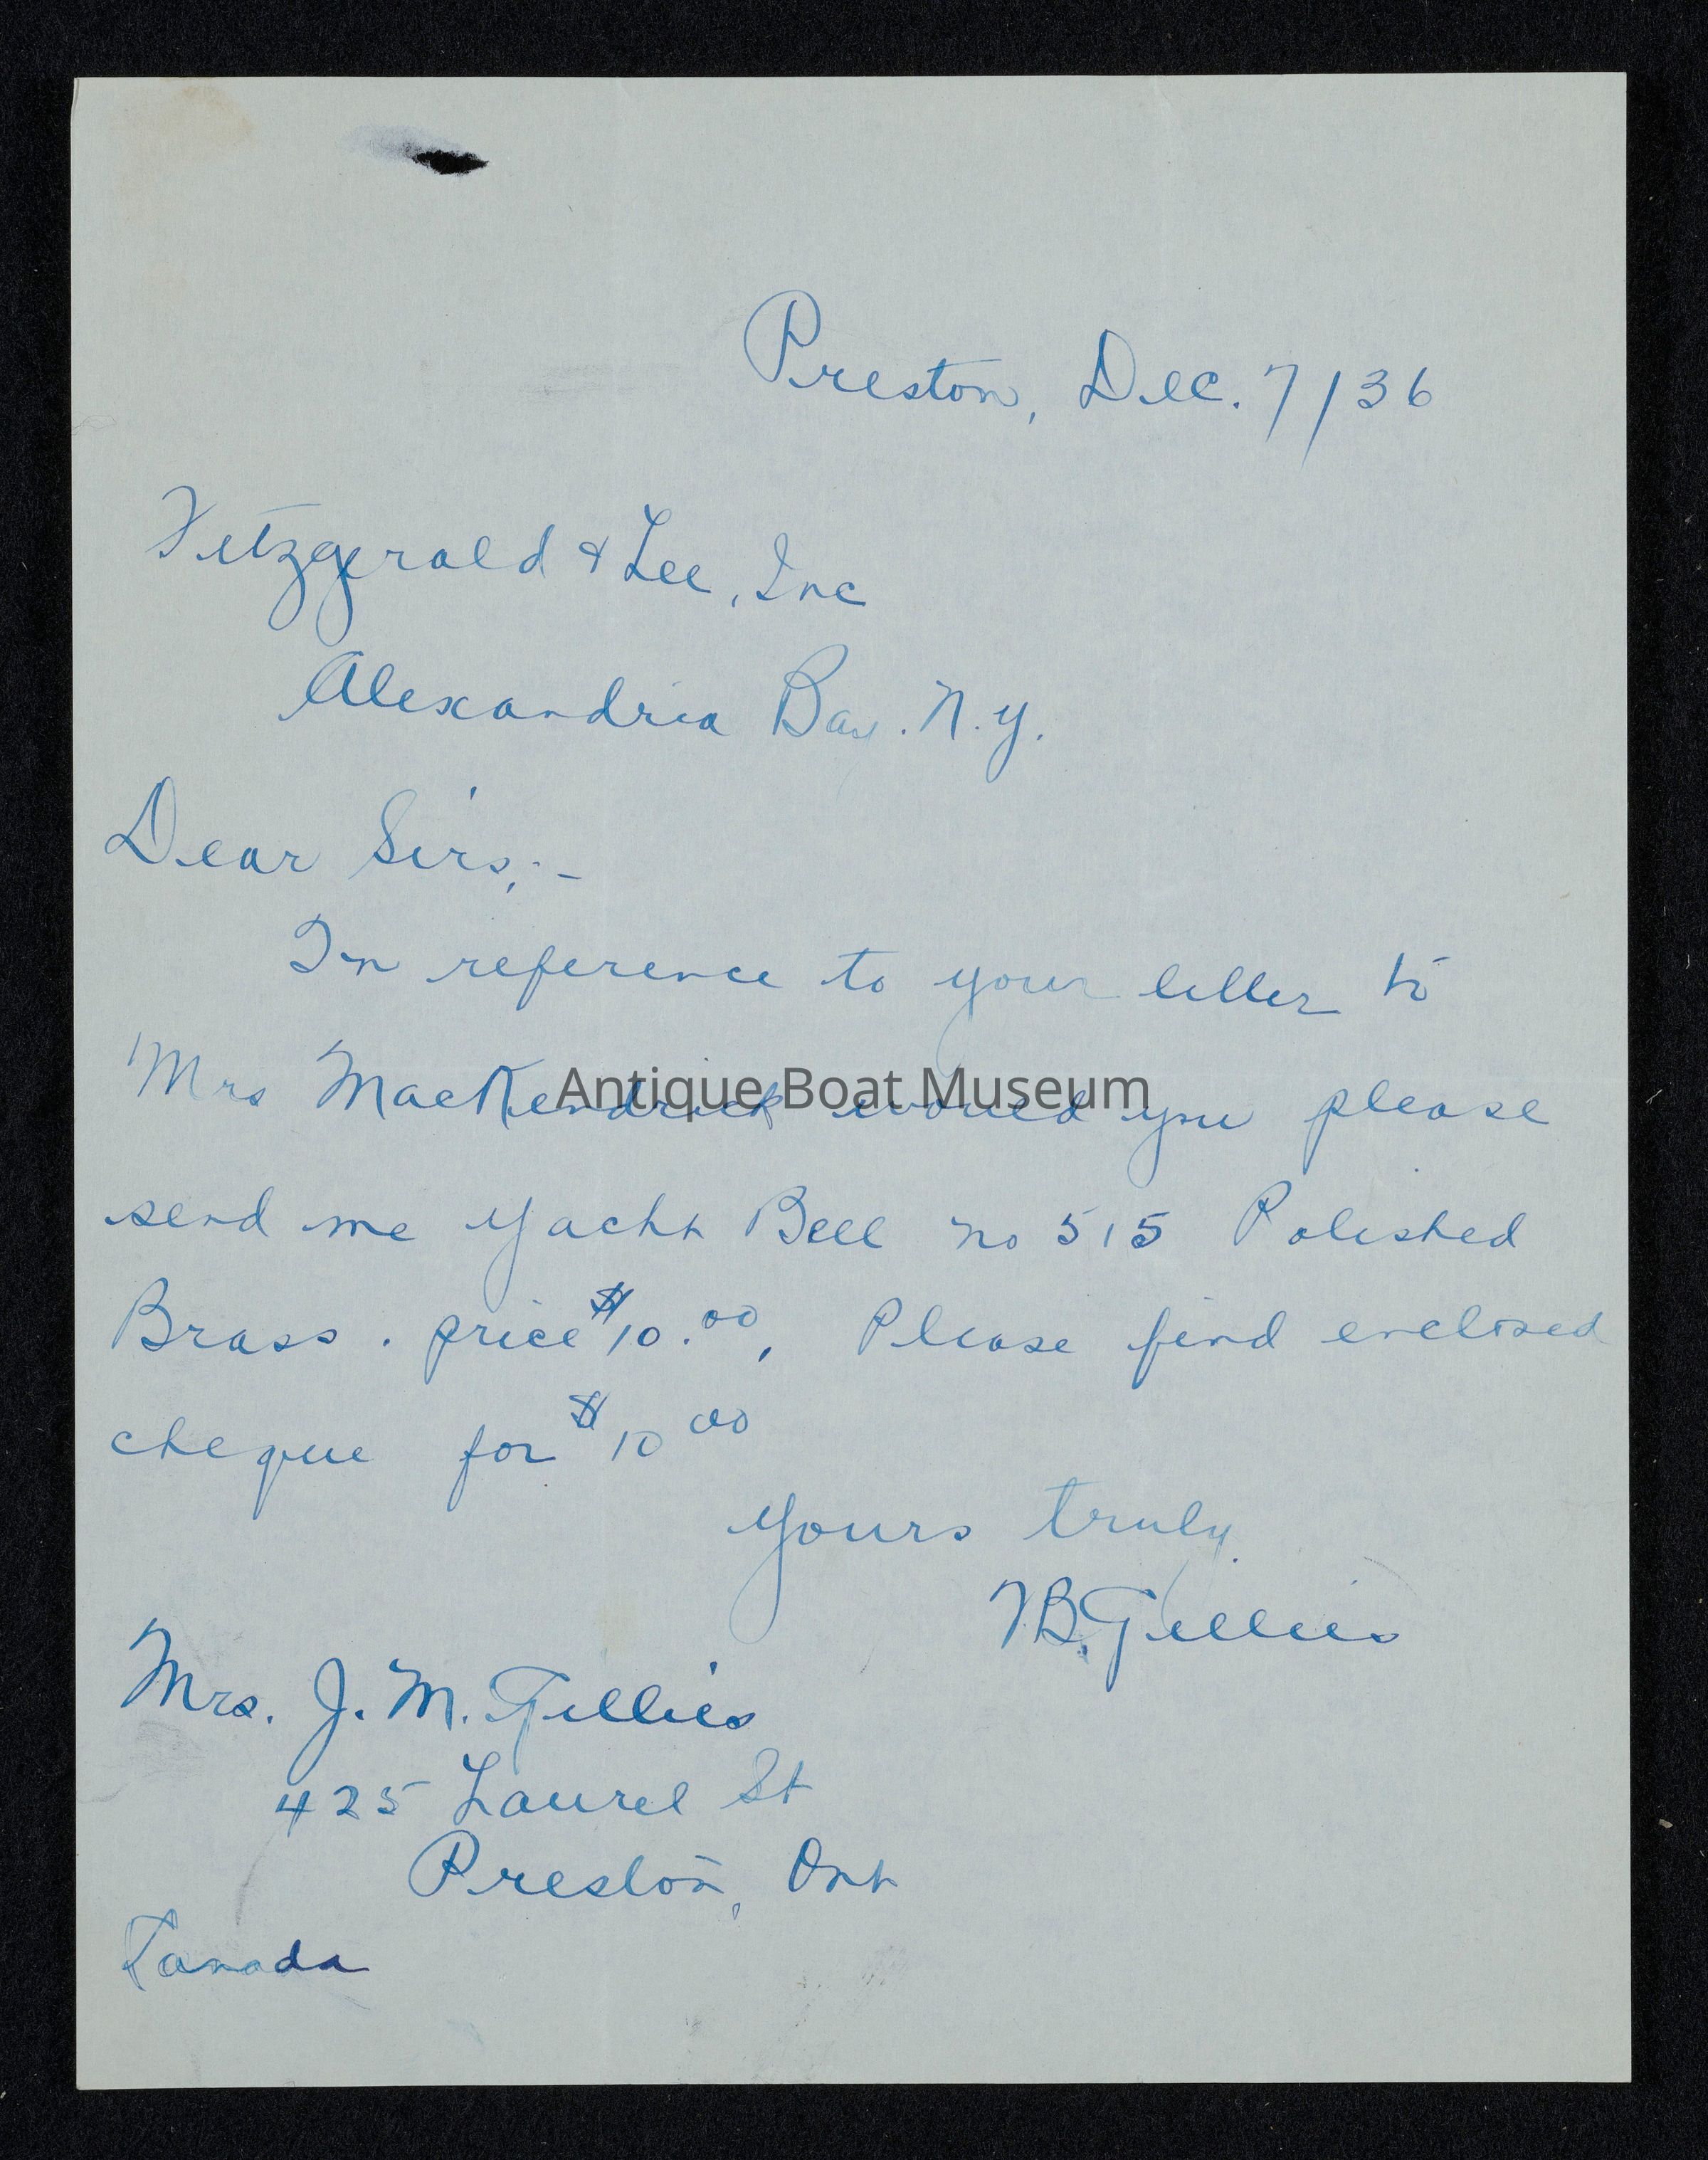 Preston, Dec. 7/36
Fitzgerald & Lee, Inc
Alexandria Bay. N.Y.
Dear Sirs,:-
In reference to your letter to
Mrs MacKendrick would you please
send me Yacht Bell no 515 Polished
Brass. price $10.00, Please find enclosed
cheque for $10 00
Yours truly
B. Gillies
Mrs. J. M. Gillies
425 Laurel St
Preston, Ont
Canada
Antique Boat Museum